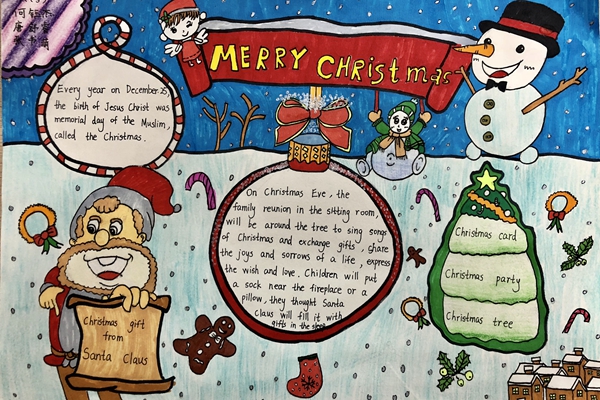 MERRY CHRISTmas
Every year on December 25
the birth of Jesus Christ was
memorial day of the Muslim,
called the Christmas.
On Christmas Eve, the
family reunion in the sitting room,
will be around the tree to sing songs
of Christmas and exchange gifts, share
the joys and sorrows of a life, express
the wish and love. Children will put
a sock near the fireplace or a
pillow, they thought Santa
Claus will fill it with
gifts in the sleep
Christmas card
Christmas party
Christmas tree
Christmas gift
from
Santa Claus